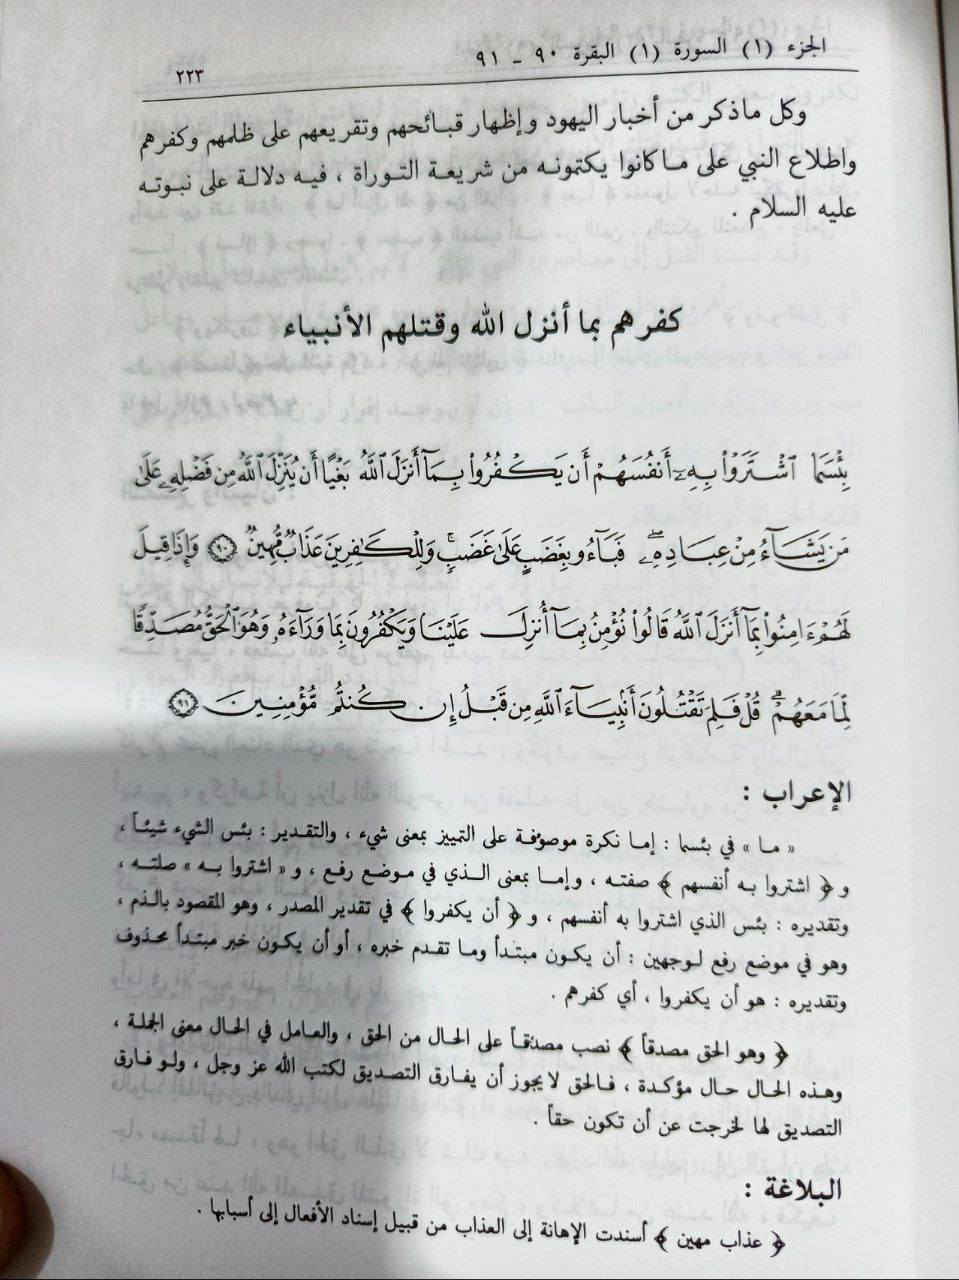 الجزء (١) السورة (١) البقرة ٩٠ ـ ٩١
٢٢٣
وكل ماذكر من أخبار اليهود وإظهار قبائحهم وتقريعهم على ظلمهم وكفرهم
واطلاع النبي على ماكانوا يكتمونه من شريعة التوراة ، فيه دلالة على نبوته
عليه السلام .
كفرهم بما أنزل الله وقتلهم الأنبياء
بِئْسَمَا اشْتَرَوْا بِهِ أَنفُسَهُمْ أَن يَكْفُرُوا بِمَا أَنزَلَ اللَّهُ بَغْيًا أَن يُنَزِّلَ اللَّهُ مِن فَضْلِهِ عَلَىٰ
مَن يَشَاءُ مِنْ عِبَادِهِ فَبَاءُو بِغَضَبٍ عَلَىٰ غَضَبٍ وَلِلْكَافِرِينَ عَذَابٌ مُّهِينٌ ٩٠ وَإِذَا قِيلَ
لَهُمْ ءَامِنُوا بِمَا أَنزَلَ اللَّهُ قَالُوا نُؤْمِنُ بِمَا أُنزِلَ عَلَيْنَا وَيَكْفُرُونَ بِمَا وَرَاءَهُ وَهُوَ الْحَقُّ مُصَدِّقًا
لِّمَا مَعَهُمْ قُلْ فَلِمَ تَقْتُلُونَ أَنبِيَاءَ اللَّهِ مِن قَبْلُ إِن كُنتُم مُّؤْمِنِينَ ٩١
الإعراب :
« ما » في بئسما : إما نكرة موصوفة على التمييز بمعنى شيء ، والتقدير : بئس الشيء شيئاً ،
و ﴿ اشتروا به أنفسهم ﴾ صفته ، وإما بمعنى الذي في موضع رفع ، و « اشتروا به » صلته ،
وتقديره : بئس الذي اشتروا به أنفسهم ، و ﴿ أن يكفروا ﴾ في تقدير المصدر ، وهو المقصود بالذم ،
وهو في موضع رفع لوجهين : أن يكون مبتدأ وما تقدم خبره ، أو أن يكون خبر مبتدأ محذوف
وتقديره : هو أن يكفروا ، أي كفرهم .
﴿ وهو الحق مصدقاً ﴾ نصب مصدّقاً على الحال من الحق ، والعامل في الحال معنى الجملة ،
وهذه الحال حال مؤكدة ، فالحق لا يجوز أن يفارق التصديق لكتب الله عز وجل ، ولو فارق
التصديق لها لخرجت عن أن تكون حقاً .
البلاغة :
﴿ عذاب مهين ﴾ أسندت الإهانة إلى العذاب من قبيل إسناد الأفعال إلى أسبابها .